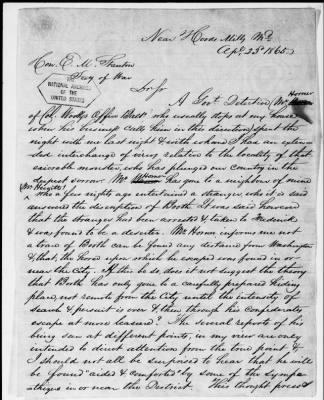 Near Hoods Mills Md.
Apl. 23d 1865
Hon. E. M. Stanton
Secy of War
NATIONAL ARCHIVES
OF THE
UNITED STATES
Sir
A Govt. Detective (Mr Horner
of Col. Woolys Office Balto who usually stops at my house
when his business calls him in this direction, spent the
night with me last night & with whom I had an exten-
ded interchange of views relative to the locality of that
execrable monster, who has plunged our Country in the
deepest sorrow. Mr Horner has gone to a neighbor of mine
who a few nights ago entertained a stranger, who it is said
answered the description of Booth. It was said however
that the stranger has been arrested & taken to Frederick
& was found to be a deserter. Mr Horner informs me not
a trace of Booth can be found any distance from Washington
& that the horse upon which he escaped was found in or
near the City. If this be so does it not suggest the theory
that Booth has only gone to a carefully prepared hiding
place, not remote from the City until the intensity of
search & pursuit is over & then through his Confederates
escape at more leasure? The several reports of his
being seen at different points, in my view are only
intended to direct attention from the true point &
I should not all be surprised to hear that he will
be found "aided & comforted" by some of the sympa-
thizers in or near the District. This thought presst